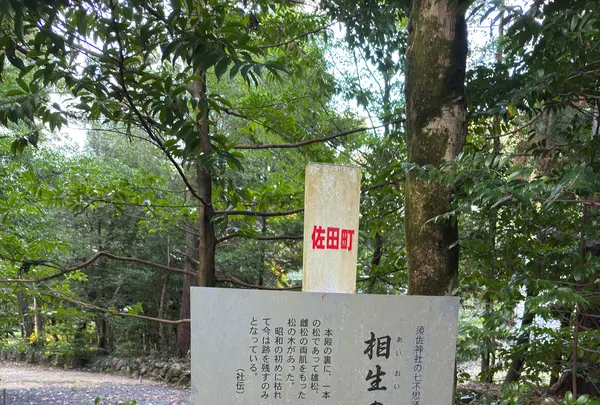 佐田町
須佐神社の七不思
相生
あいおい
本殿の裏に、一本
の松であって雄松、
雌松の両肌をもった
松の木があった。
昭和の初めに枯れ
て今は跡を残すのみ
となっている。
(社伝)